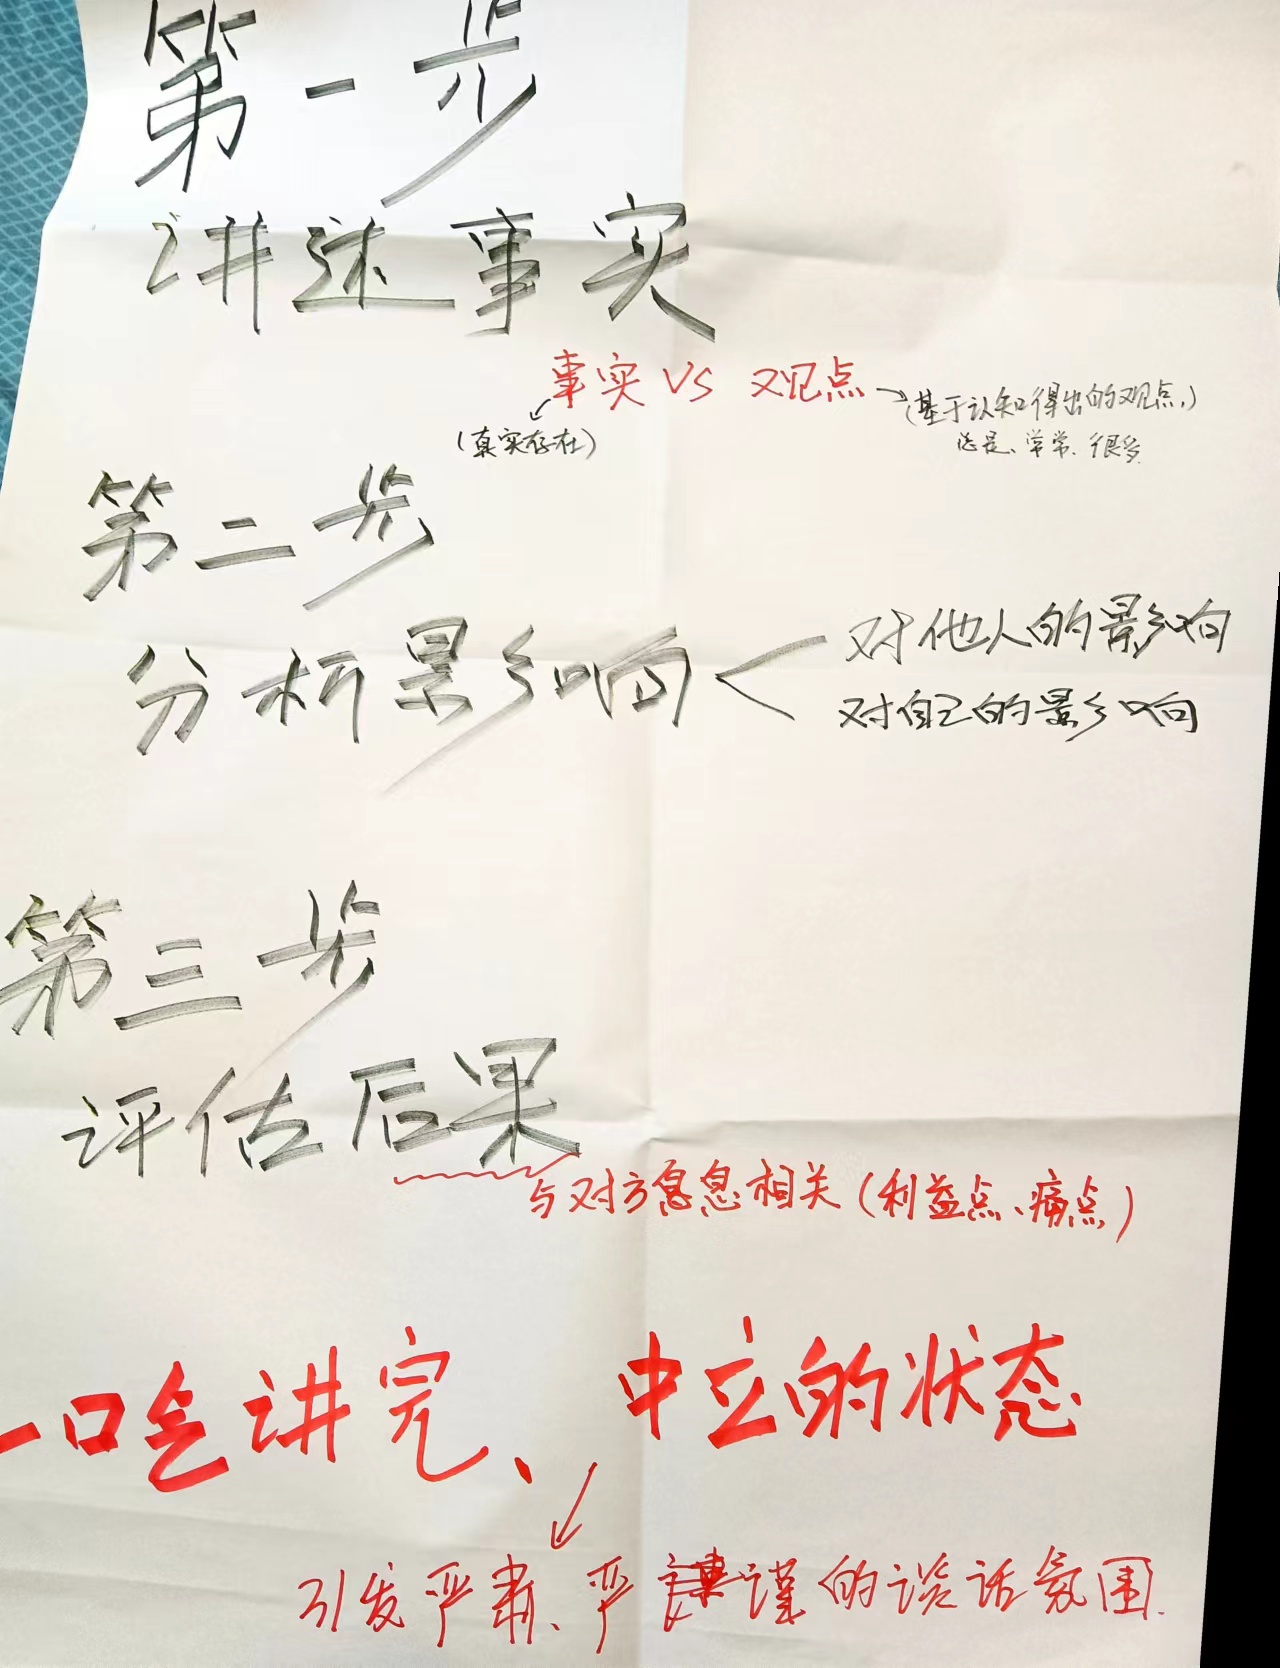 第一步
讲述事实
事实 VS 观点
(真实存在)
(基于认知得出的观点,)
总是、常常、很多
第二步
分析影响
对他人的影响
对自己的影响
第三步
评估后果
与对方息息相关(利益点、痛点)
一口气讲完、中立的状态
引发严肃、严谨的谈话氛围.